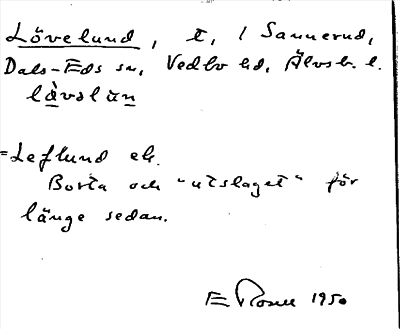 Lövelund, t, / Sannerud,
Dals-Eds sn, Vedbo hd, Älvsb. l.
làvəlun
=Leflund ek.
Borta och "utslaget" för
länge sedan.
E Rosell 1950